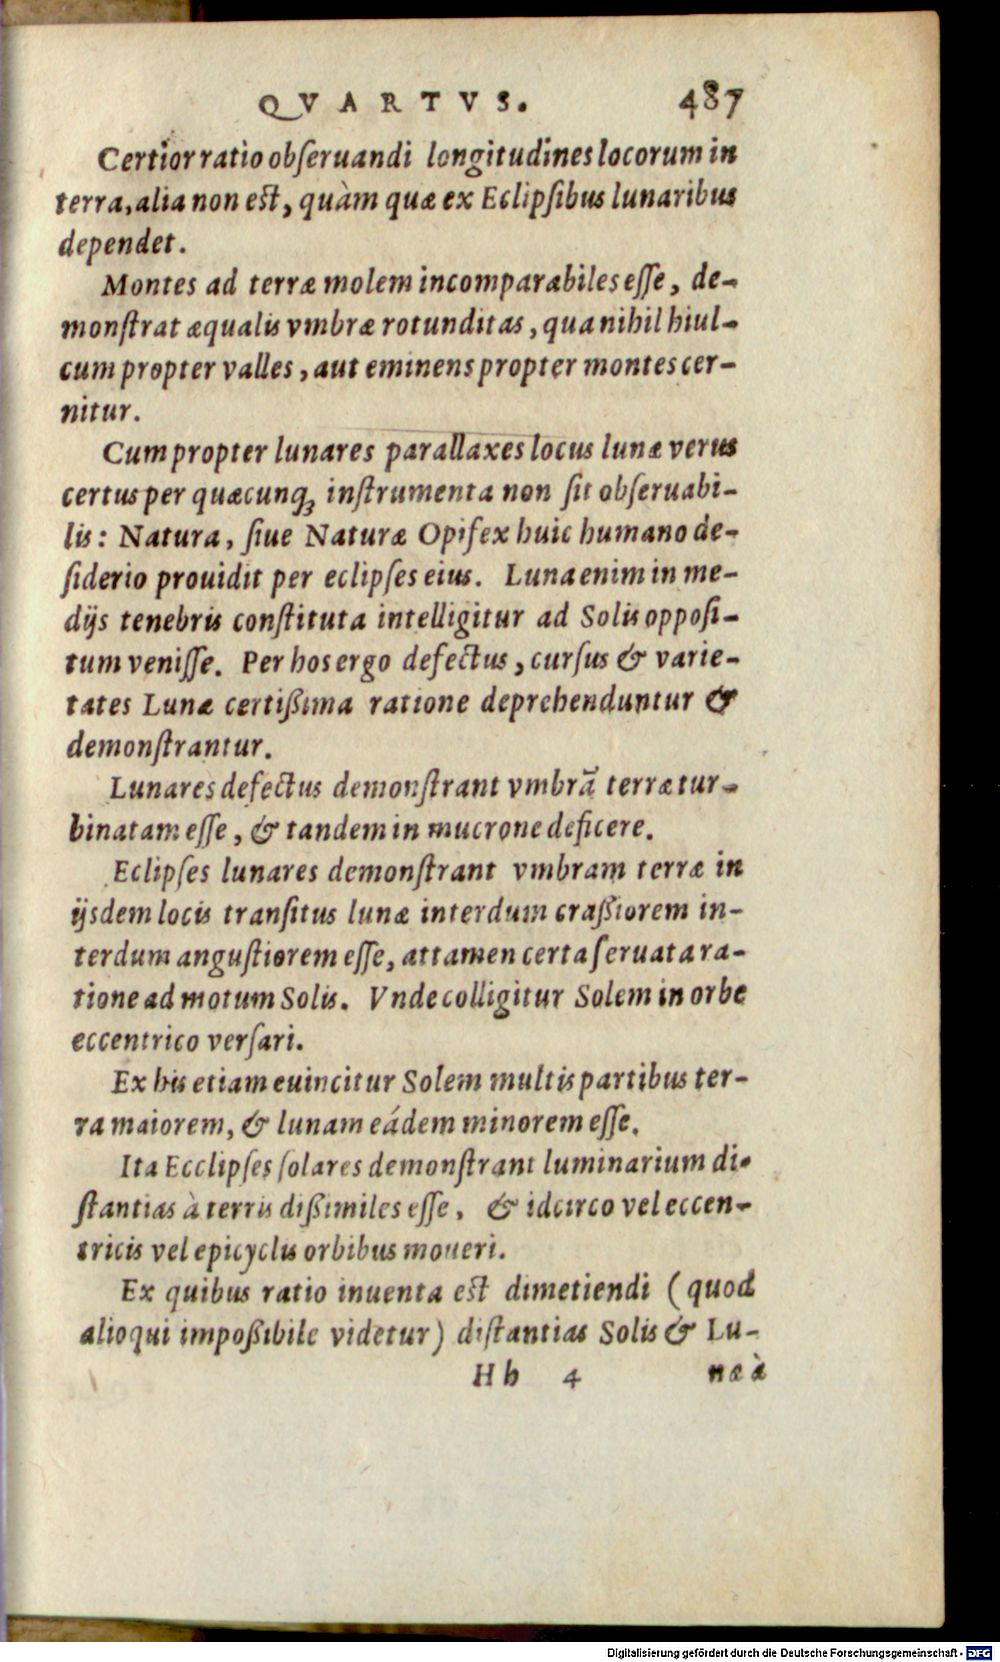 QVARTVS. 487
Certior ratio obſeruandi longitudines locorum in
terra, alia non est, quàm quæ ex Eclipſibus lunaribus
dependet.
Montes ad terræ molem incomparabiles eſſe, de-
monſtrat æqualis vmbræ rotunditas, qua nihil hiul-
cum propter valles, aut eminens propter montes cer-
nitur.
Cum propter lunares parallaxes locus lunæ verus
certus per quæcunq; inſtrumenta non ſit obſeruabi-
lis: Natura, ſiue Naturæ Opifex huic humano de-
ſiderio prouidit per eclipſes eius. Luna enim in me-
dijs tenebris conſtituta intelligitur ad Solis oppoſi-
tum veniſſe. Per hos ergo defectus, curſus & varie-
tates Lunæ certißima ratione deprehenduntur &
demonſtrantur.
Lunares defectus demonſtrant vmbrā terræ tur-
binatam eſſe, & tandem in mucrone deficere.
Eclipſes lunares demonſtrant vmbram terræ in
ijsdem locis tranſitus lunæ interdum craßiorem in-
terdum anguſtiorem eſſe, attamen certa ſeruata ra-
tione ad motum Solis. Vnde colligitur Solem in orbe
eccentrico verſari.
Ex his etiam euincitur Solem multis partibus ter-
ra maiorem, & lunam eádem minorem eſſe.
Ita Ecclipſes ſolares demonſtrant luminarium di-
ſtantias à terris dißimiles eſſe, & idcirco vel eccen-
tricis vel epicyclis orbibus moueri.
Ex quibus ratio inuenta est dimetiendi (quod
alioqui impoßibile videtur) diſtantias Solis & Lu-
Hh 4 næ à
Digitalisierung gefördert durch die Deutsche Forschungsgemeinschaft - DFG